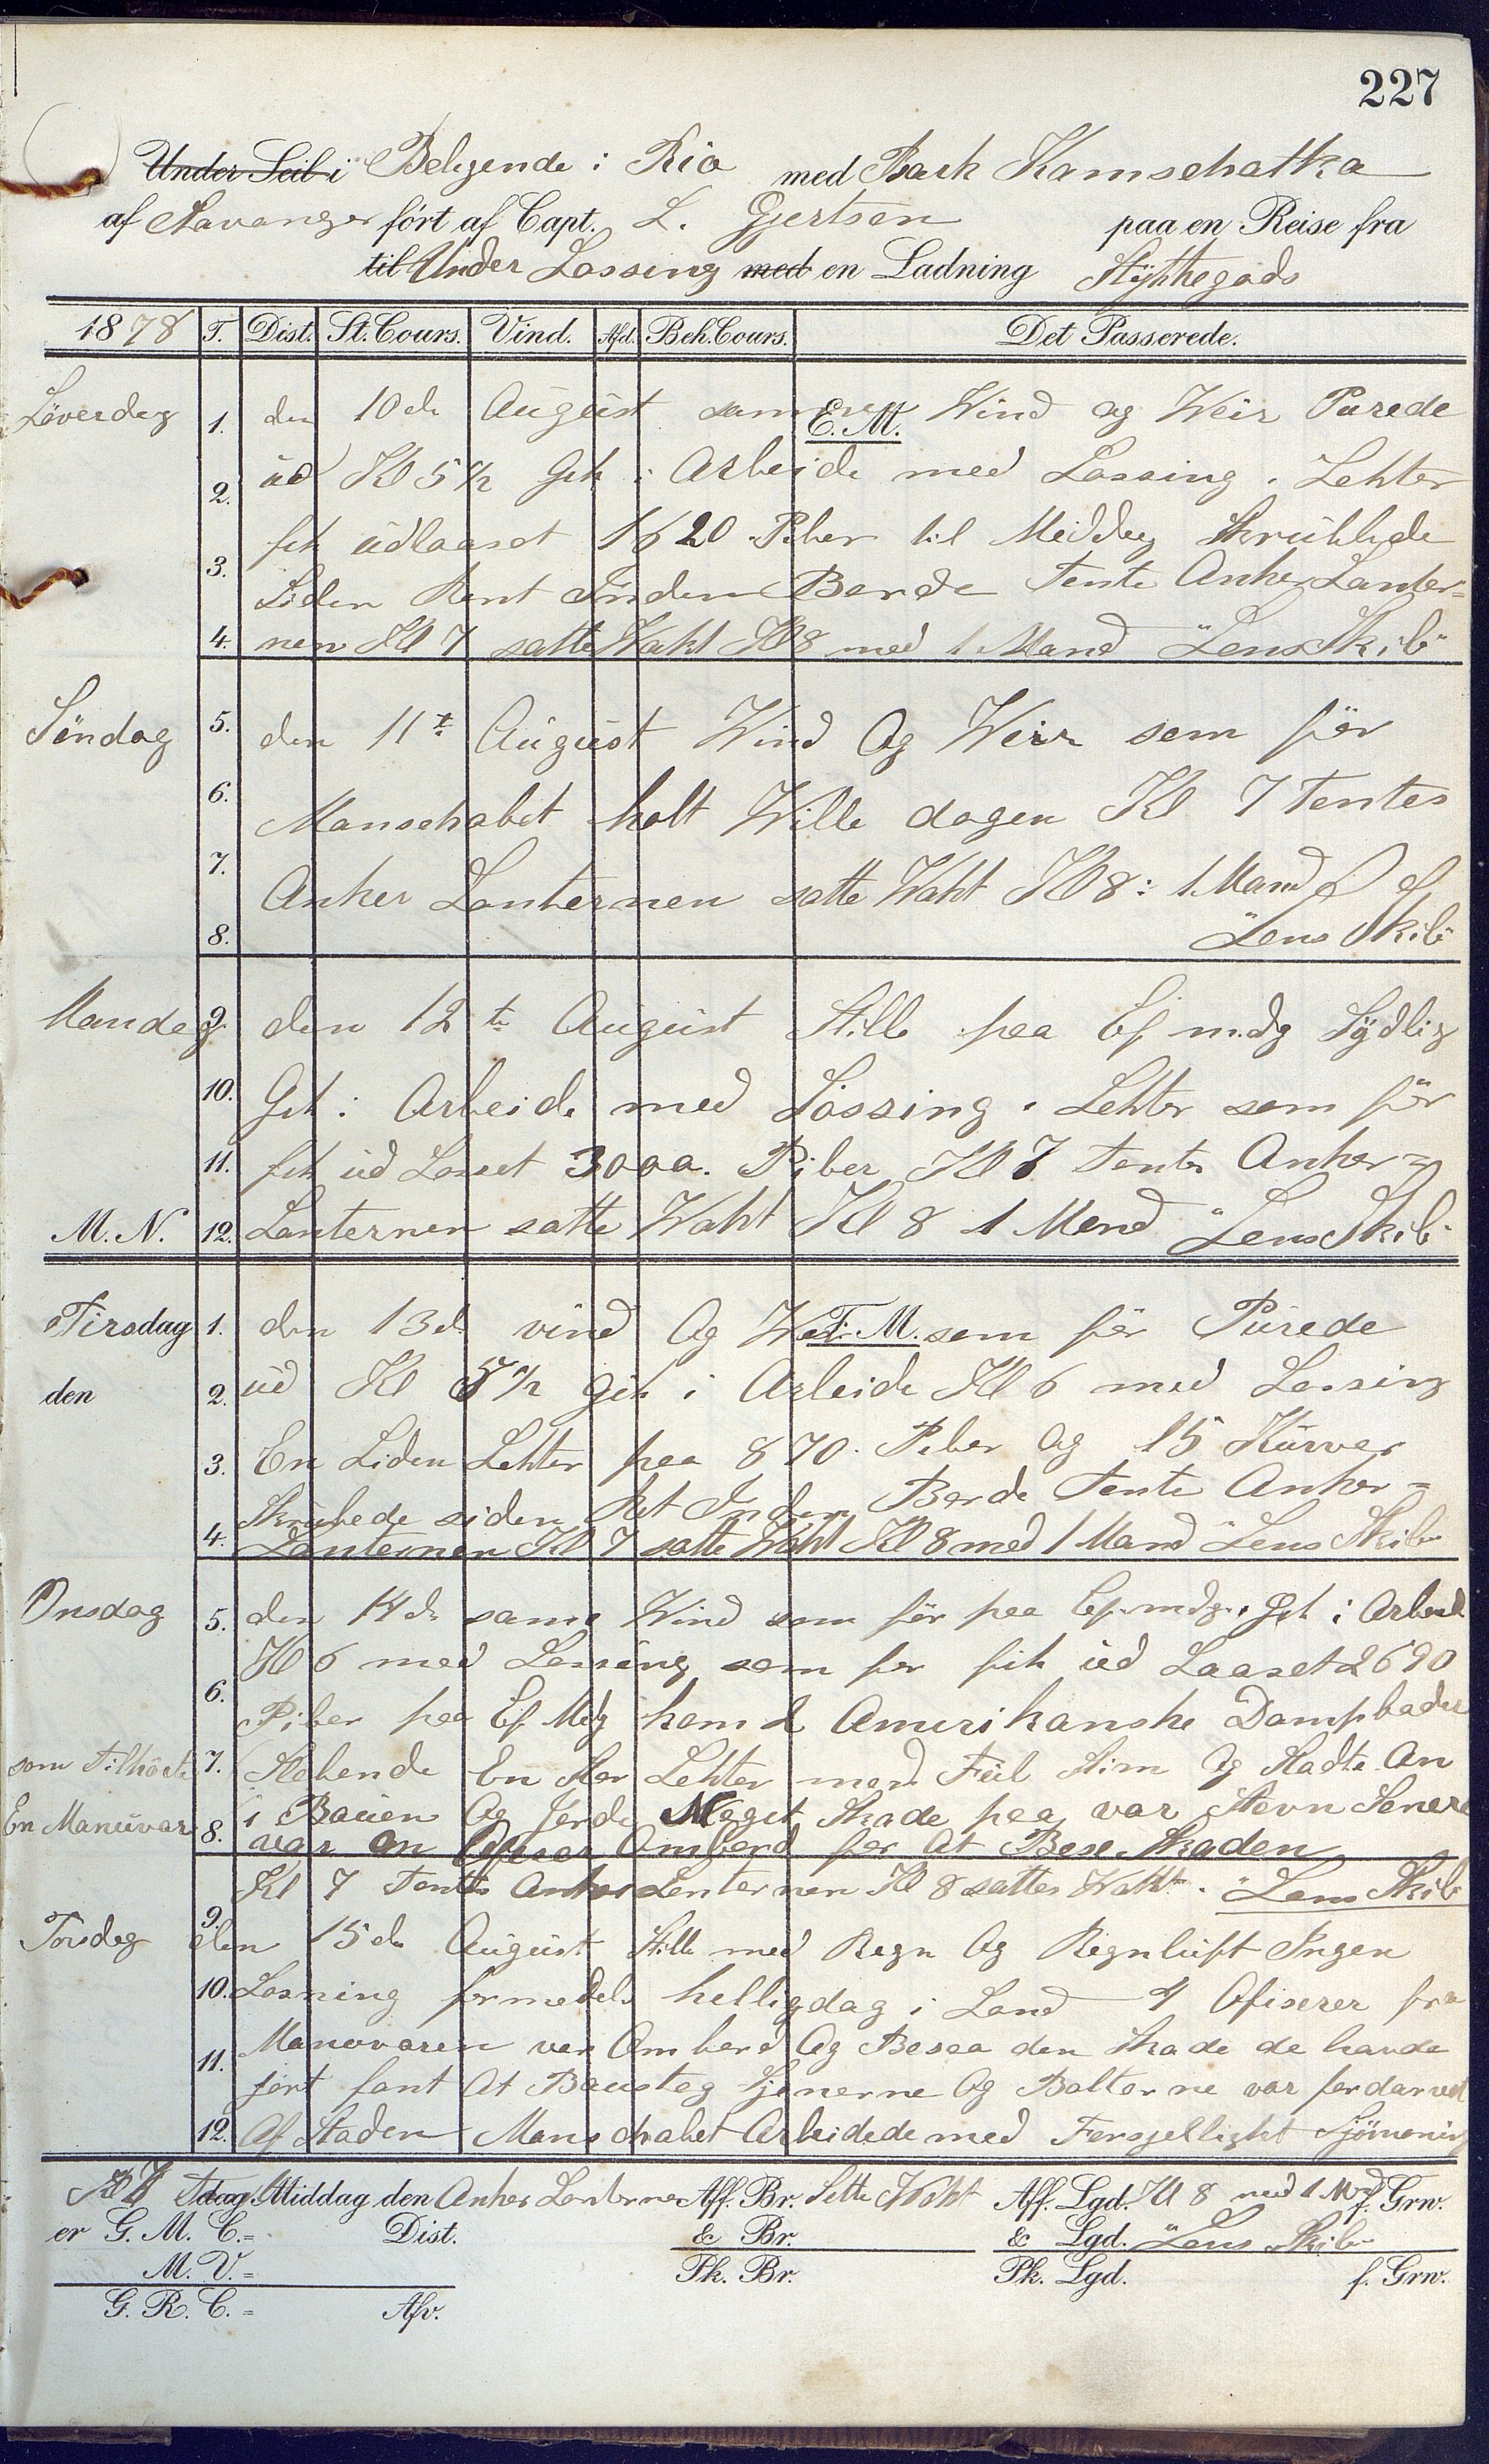 227
Under Seil i Beligende i Rio med Bark Kamschatka
af Stavanger fört af Capt. L. Gjertsen paa en Reise fra
til Under Lossing med en Ladning Stÿkkegods
1878 T. Dist. St. Cours. Vind. Afd. Beh. Cours. Det Passerede.
E. M.
Löverdag 1. den 10de Aügüst samme Wind og Weir Purede
2. üd Kl 5½ Gik i Arbeide med Lossing i Lehter
3. fik üdlaaset 1620 Piber til Middag Skrübbede
Siden Rent Inden Borde Tente Anker Lanter=
4. nen Kl 7 satte Waht Kl 8 med 1 Mand "Lens Skib"
Söndag 5. den 11te Aügüst Wind Og Weir som för
6. Manschabet holt Wille dagen Kl 7 Tentes
7. Anker Lanternen satte Waht Kl 8: 1 Mand
8. "Lens Skib"
Mandag 9. den 12te Aügüst Stille paa Ef m.dg Sÿdlig
10. Gik i Arbeide med Lossing i Lehter som för
11. fik üd Losset 3000. Piber Kl 7 Tente Anker=
M. N. 12. Lanternen satte Waht Kl 8 1 Mand "Lens Skib"
F. M.
Tirsdag 1. den 13de vind Og Weir som för Pürede
den 2. üd Kl 5½ gik i Arbeide Kl 6 med Lossing
3. En Liden Lehter paa 870. Piber Og 15 Kürver
Skrübede siden Ret Inden Borde Tente Anker=
4. Lanternen Kl 7 satte Waht Kl 8 med 1 Mand "Lens Skib
Onsdag 5. den 14de same Wind som för paa Ef.mdg. Gik i Arbeid
Kl 6 med Lossing som for fik üd Laaset 2690
6. Piber paa Ef Mdg kom 2 Amerikanske Dampbader
som Tilhörte 7. Slebende En Stor Lehter med Fül Stim Og Stadte An
En Manüvar 8. i Baüen Og Jorde Meget Skade paa var Stevn Senere
var en Ofiser Omberd for At Bese Skaden
Kl 7 Tentes Anker Lanternen Kl 8 sattes Waht. "Lens Skib
9.
Torsdag den 15de Aügüst Stille med Regn Og Regnlüft Ingen
10. Losning formedels helligdag i Land 4 Ofiserer fra
11. Manovaren var Omberd Og Besaa den Skade de havde
jort fant At Baustag Kjenerne Og Bolterne var fordarvet
12. Af Staden Manschabet Arbeidede med Forsjelligt Sjömening
Kl 7 Idag Middag den Anker Lanterne Aff. Br. Sette Waht Aff. Lgd. Kl 8 med 1 Md f. Grw.
er G. M. C.= Dist. & Br. & Lgd. "Lens Skib
M. V.= Pk. Br. Pk. Lgd. f. Grw.
G. R. C.= Afv.